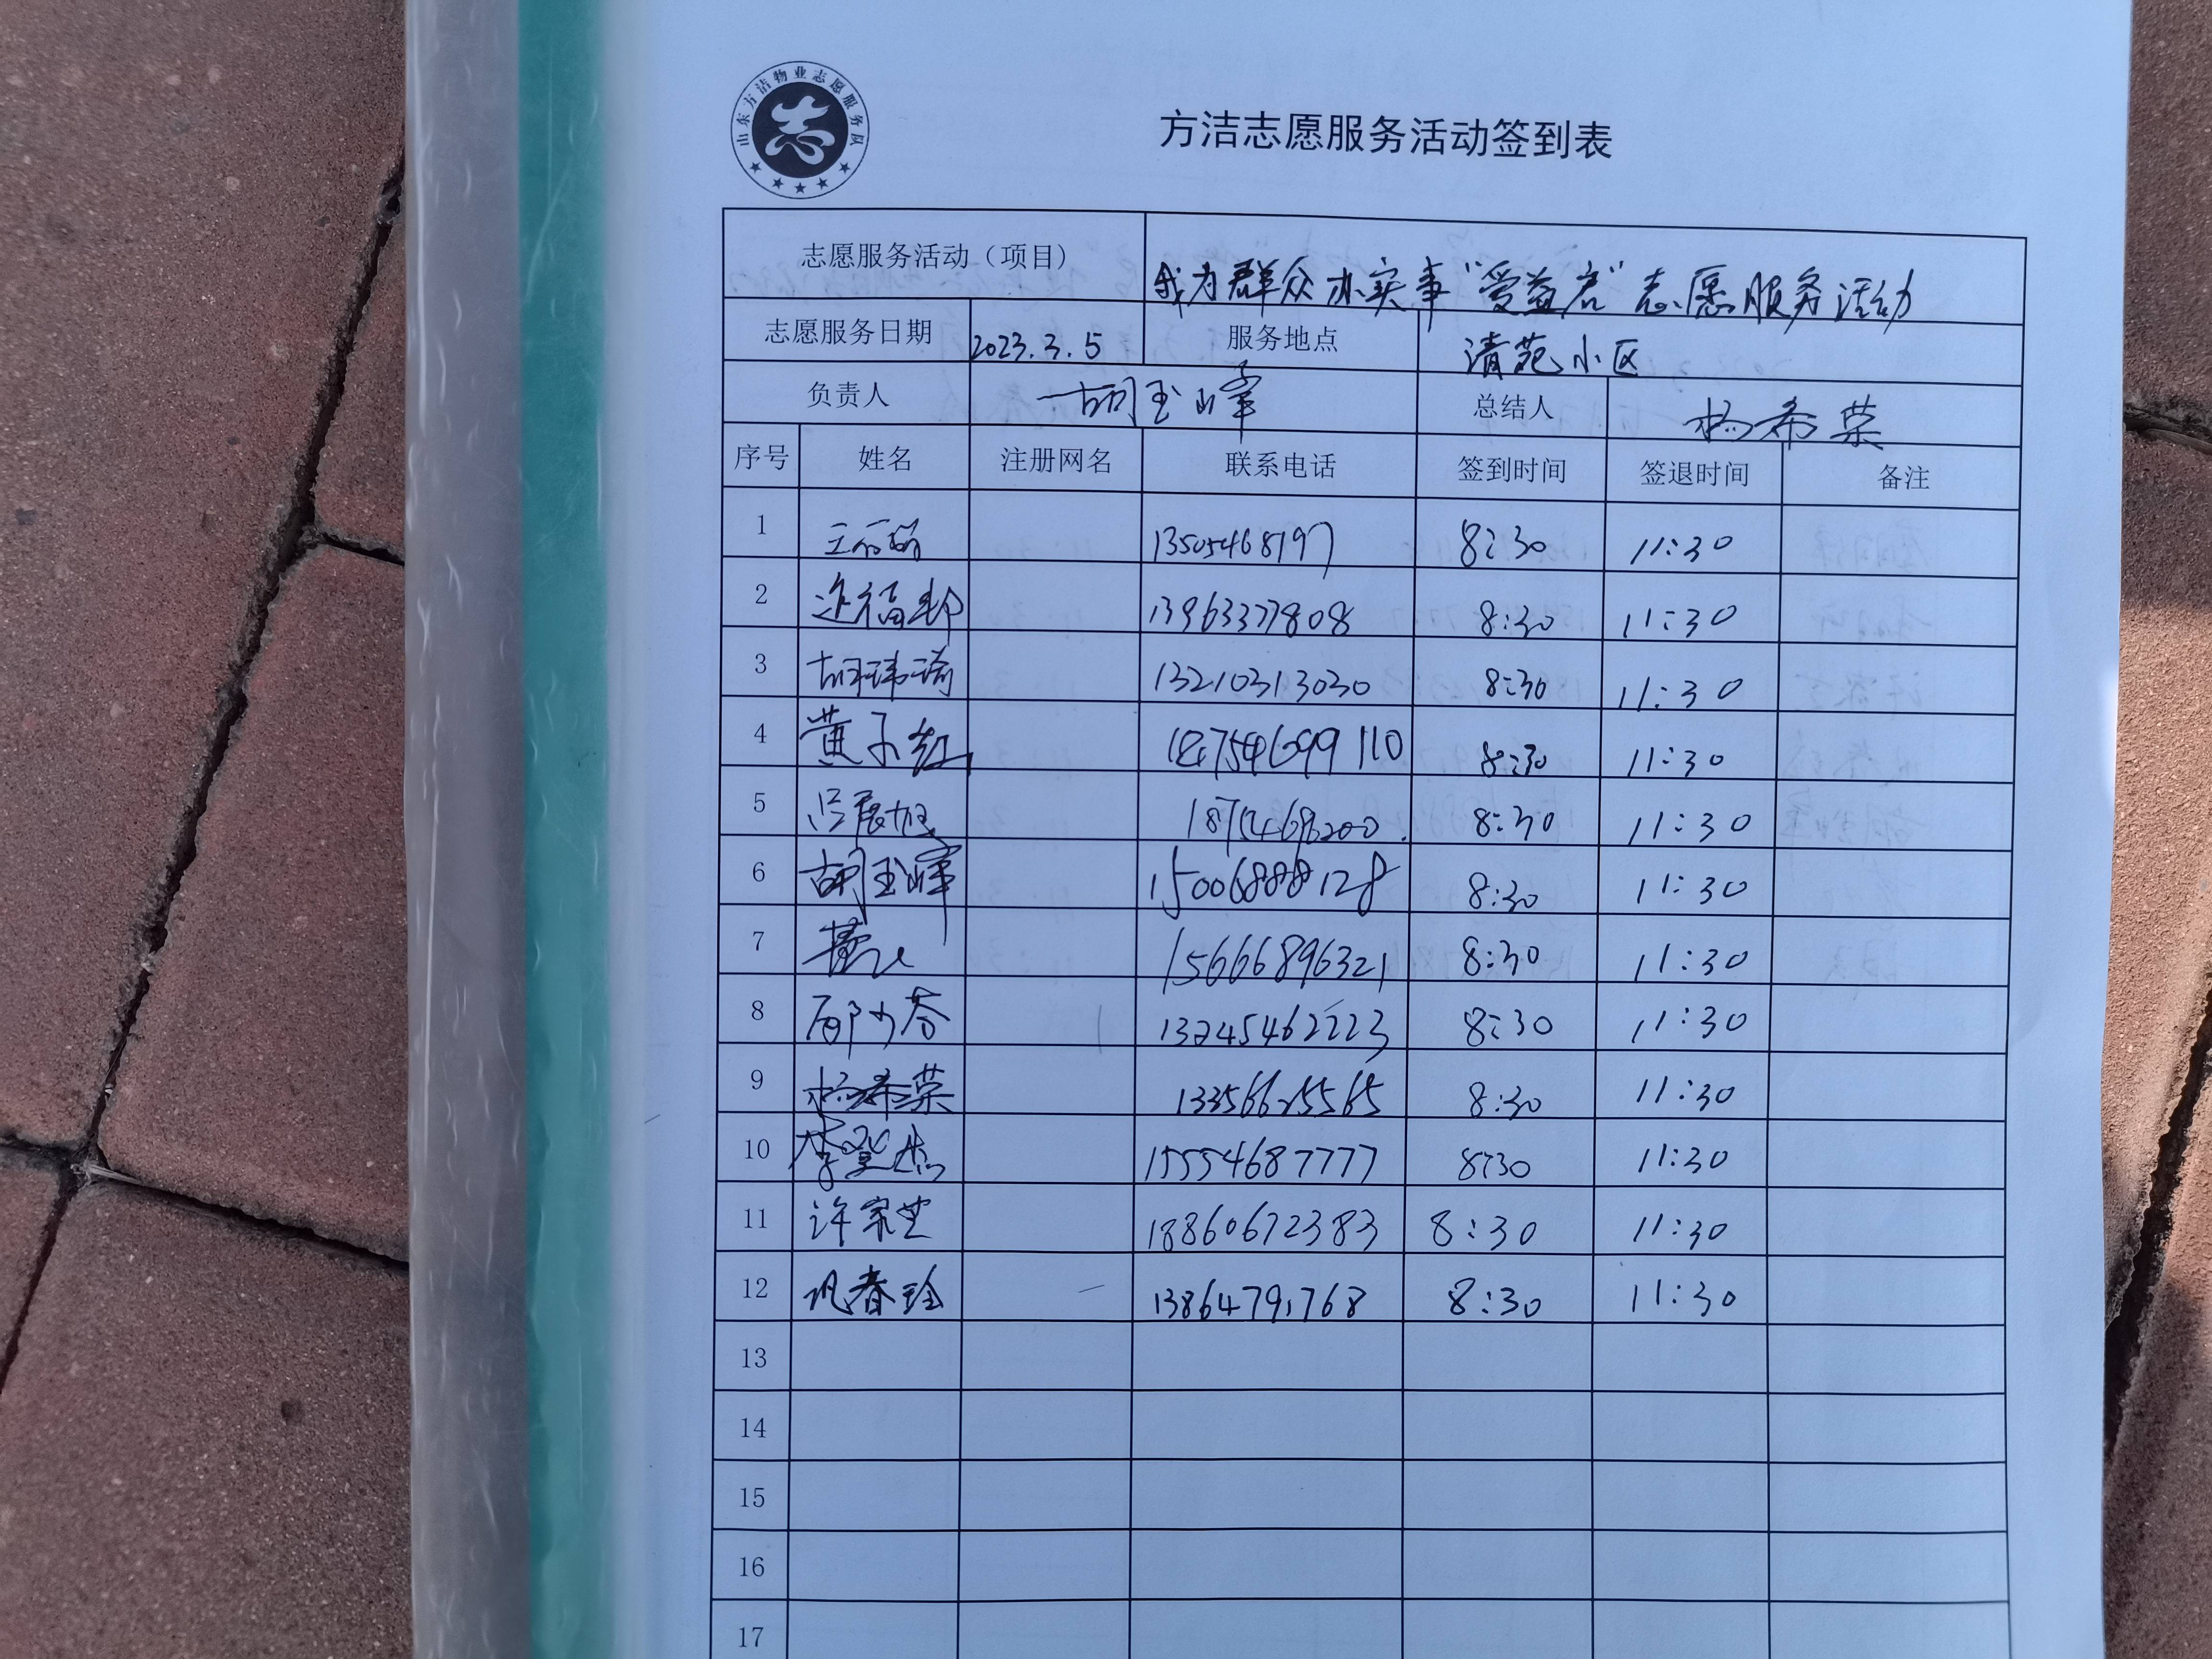 山东方洁物业志愿服务队
方洁志愿服务活动签到表
志愿服务活动（项目） 我为群众办实事“受益启”志愿服务活动
志愿服务日期 2023.3.5 服务地点 清苑小区
负责人 胡玉峰 总结人 杨希荣
序号 姓名 注册网名 联系电话 签到时间 签退时间 备注
1 13505468197 8:30 11:30
2 13963377808 8:30 11:30
3 胡玮琦 13210313030 8:30 11:30
4 黄子红 8:30 11:30
5 吕展旭 8:30 11:30
6 胡玉峰 15006888128 8:30 11:30
7 15666896321 8:30 11:30
8 13245462223 8:30 11:30
9 杨希荣 13356625565 8:30 11:30
10 李登杰 15554687777 8:30 11:30
11 许家芝 18860672383 8:30 11:30
12 巩春玲 13864791768 8:30 11:30
13
14
15
16
17